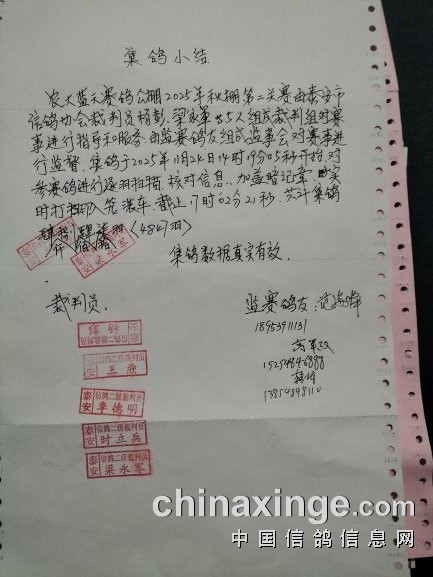 集鸽小结
农大蓝天赛鸽公棚2025年秋棚第二关赛由泰安市
信鸽协会裁判员杨彭、梁永军等5人组成裁判组对赛
事进行指导和服务由监赛鸽友组成监事会对赛事进
行监督。集鸽于2025年11月24日14时19分05秒开始,对
参赛鸽进行逐羽扫描、核对信息、加盖暗记章、
时打印入笼装车。截止17时02分21秒,共计集鸽
(4847羽)
梁永军
集鸽数据真实有效.
裁判员.
监赛鸽友:
18953911131
15254846888
13854898110
信鸽二级裁判员
泰安
王彦
信鸽二级裁判员
泰安
李德明
信鸽二级裁判员
泰安
时立兵
信鸽二级裁判员
泰安
梁永军
chinaxinge.com
中国信鸽信息网